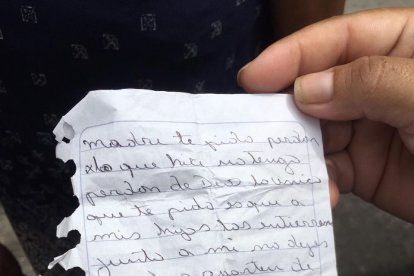 madre te pido perdon
xlo que hice no tengo
perdon de Dios lo unico
que te pido es que a
mis hijos los entierren
junto a mi no dejes